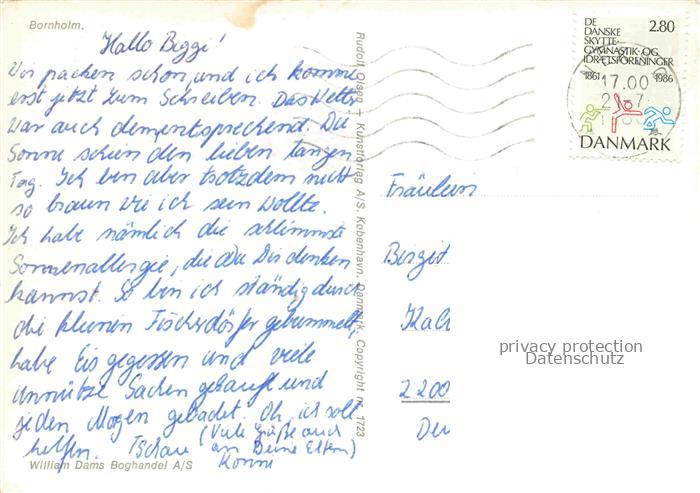 Bornholm.
Hallo Biggi!
Wir packen schon und ich komme
erst jetzt zum Schreiben. Das Wetter
war auch dementsprechend. Die
Sonne schien den lieben langen
Tag. Ich bin aber trotzdem nicht
so braun wie ich sein wollte.
Ich habe nämlich die schlimmste
Sonnenallergie, die Du Dir denken
kannst. So bin ich ständig durch
die kleinen Fischerdörfer gebummelt,
habe Eis gegessen und viele
unnütze Sachen gekauft und
jeden Morgen gebadet. Oh, ich soll
helfen. Tschau (Viele Grüße auch
an Deine Eltern)
William Dams Boghandel A/S
Rudolf Olsen – Kunstforlag A/S. København. Danmark. Copyright nr. 1723
DE
DANSKE
SKYTTE-
GYMNASTIK- OG
IDRÆTSFORENINGER
2.80
1861
1986
17.00
DANMARK
Fräulein
Birgit
2200
privacy protection
Datenschutz